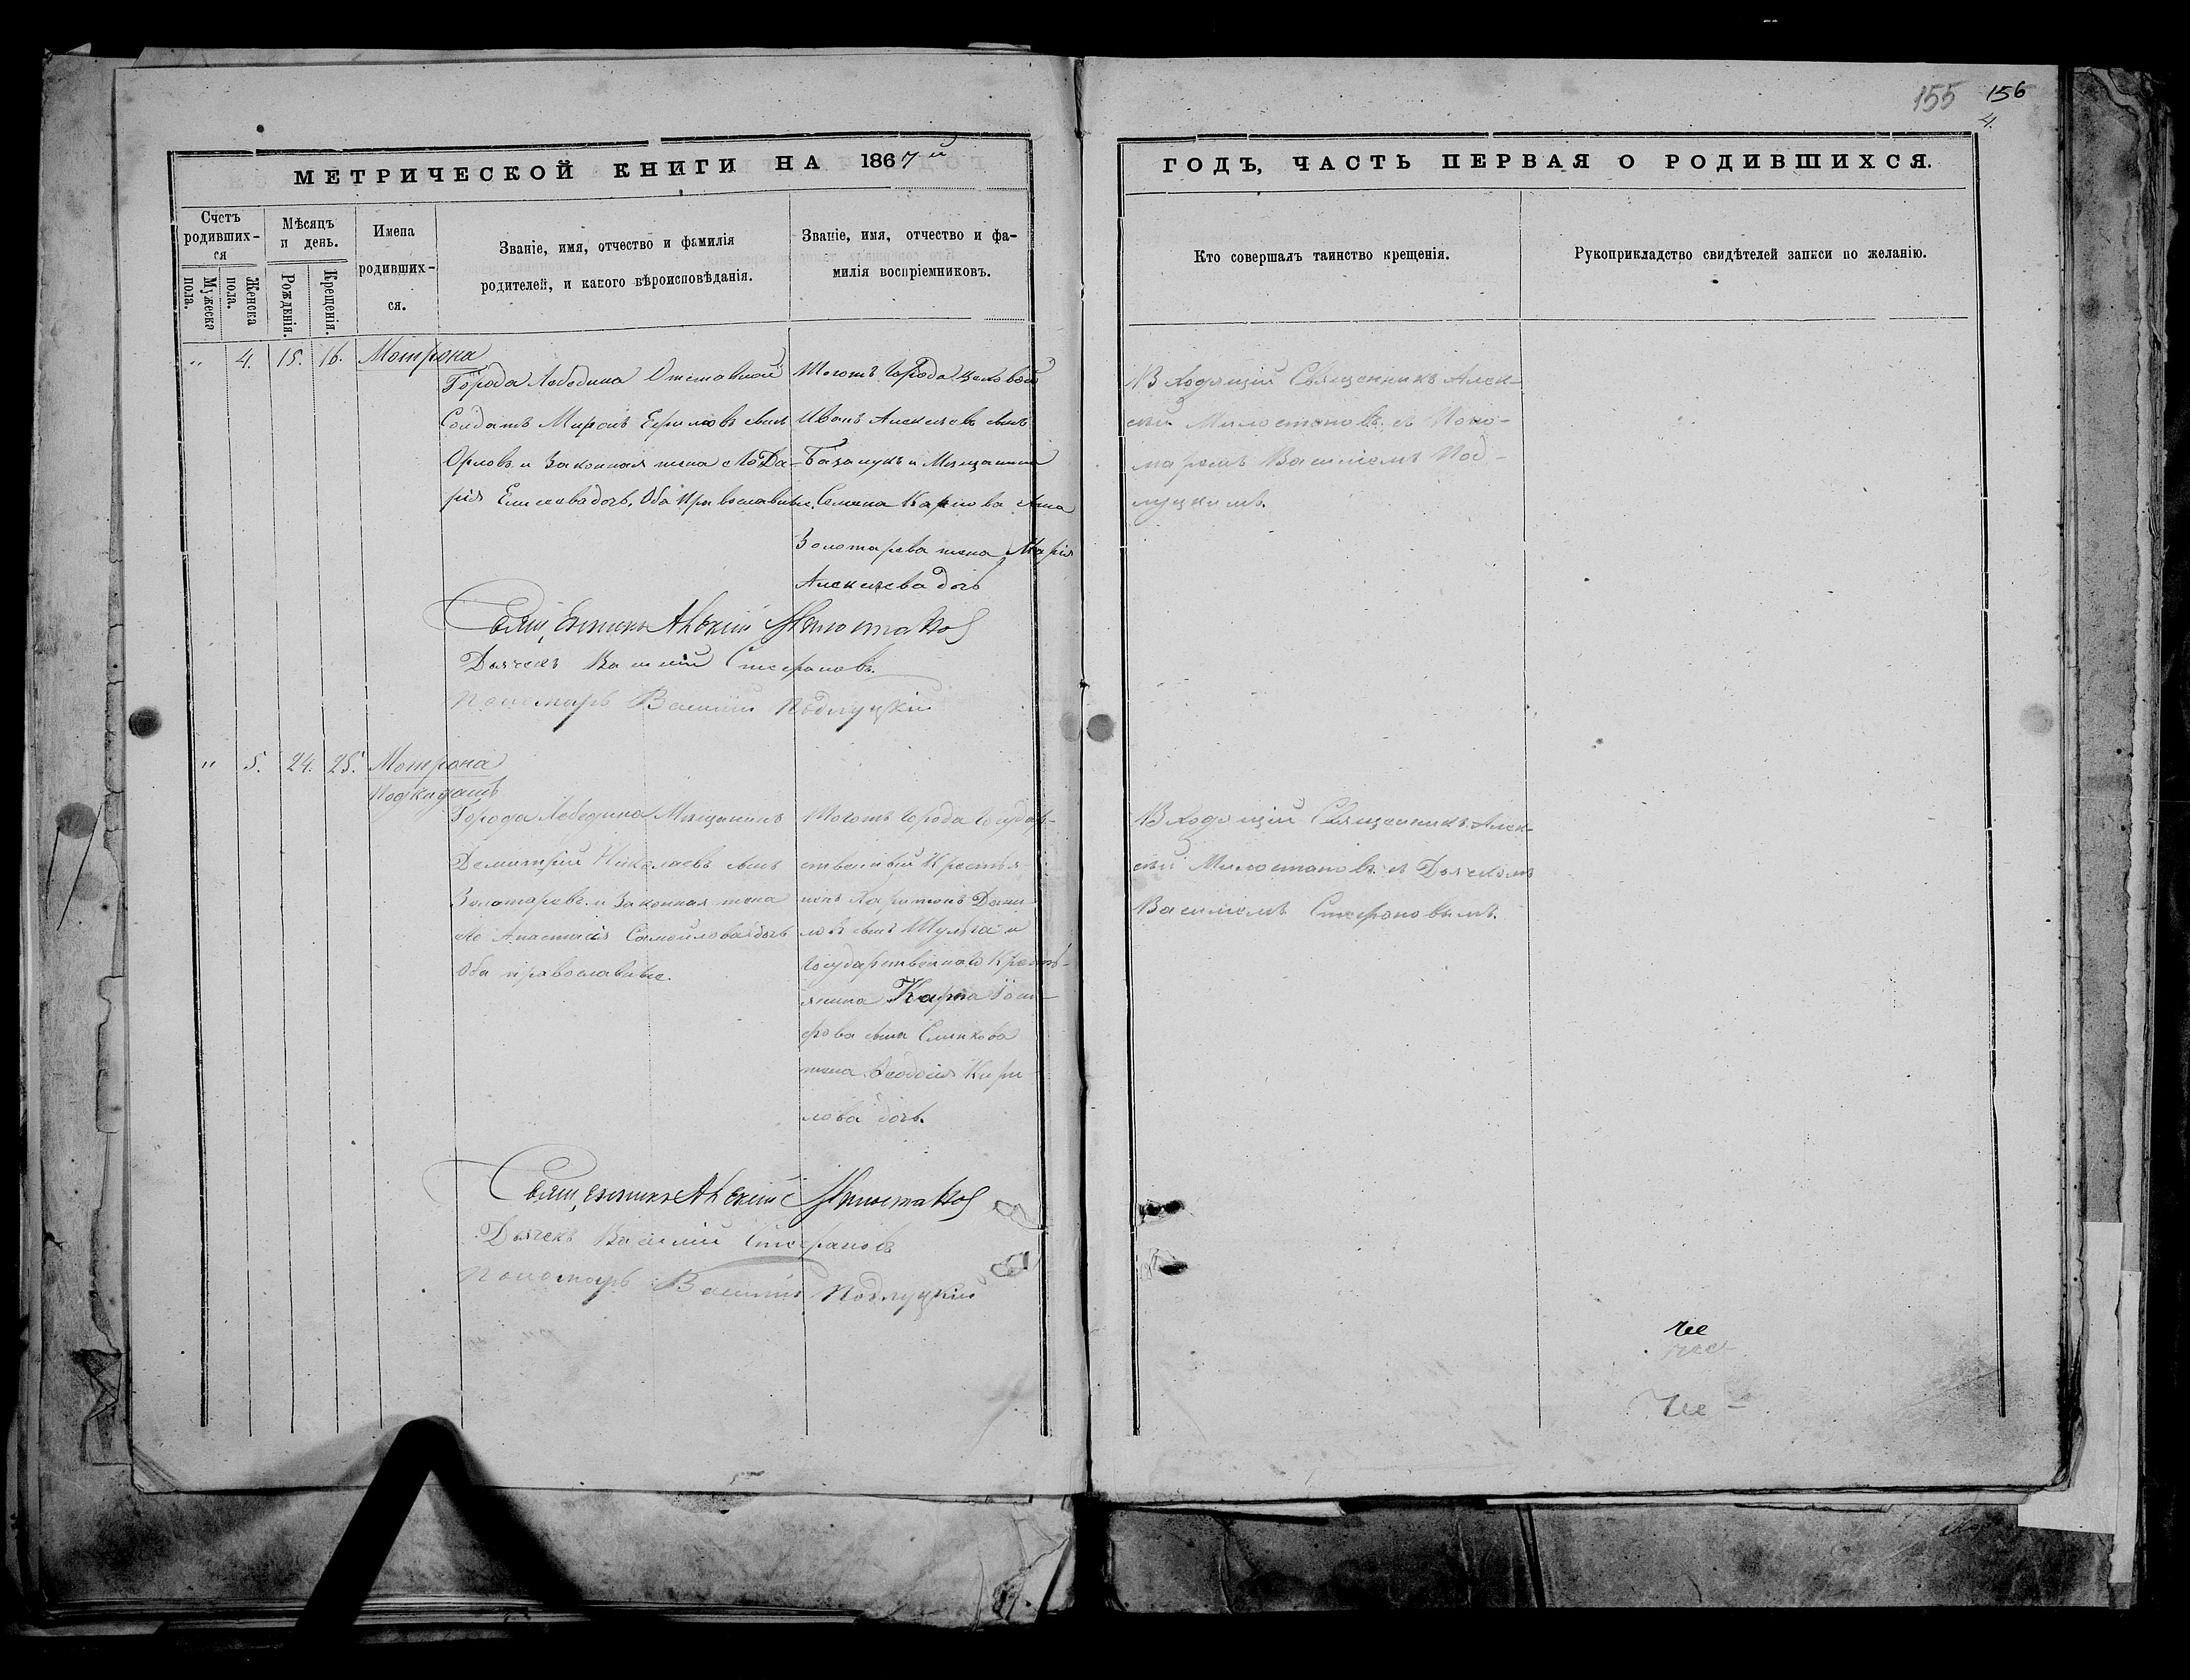 155 156
4.
МЕТРИЧЕСКОЙ КНИГИ НА 1867й
ГОДЪ, ЧАСТЬ ПЕРВАЯ О РОДИВШИХСЯ.
Счетъ
родивших-
ся
Мужеска
пола.
Женска
пола.
Мѣсяцъ
и день.
Рожденія.
Крещенія.
Имена
родивших-
ся.
Званіе, имя, отчество и фамилія
родителей, и какого вѣроисповѣданія.
Званіе, имя, отчество и фа-
милія воспріемниковъ.
Кто совершалъ таинство крещенія.
Рукоприкладство свидѣтелей записи по желанію.
" 4. 15. 16. Мотрона
Города Лебедина Отставной
Солдатъ Миронъ сынъ
Орловъ и законная жена его Да-
рія дочь, Оба православные.
Тогожъ города
Иванъ Алексѣевъ сынъ
и Мѣщанина
Семена Карпова сына
Золотарева жена Марія
Алексѣева дочь
Входящій Священникъ Алек-
сѣй Милостановъ съ Поно-
маремъ Василіемъ Под-
луцкимъ.
Священникъ Алексій Милостановъ
Дьячекъ Василій Стефановъ
Пономарь Василій Подлуцкій
" 5. 24. 25. Мотрона
Подкидышъ
Города Лебедина Мѣщанинъ
Димитрій Николаевъ сынъ
Золотаревъ и законная жена
его Анастасія Самойлова дочь
Оба православные.
Тогожъ города Государ-
ственный Крестья-
нинъ Харитонъ Дани-
ловъ сынъ Шульга и
Государственнаго Кресть-
янина Карпа
сына
жена Ѳеодосія Кири-
лова дочь.
Входящій Священникъ Алек-
сѣй Милостановъ съ Дьячкомъ
Василіемъ Стефановымъ.
Священникъ Алексій Милостановъ
Дьячекъ Василій Стефановъ
Пономарь Василій Подлуцкій